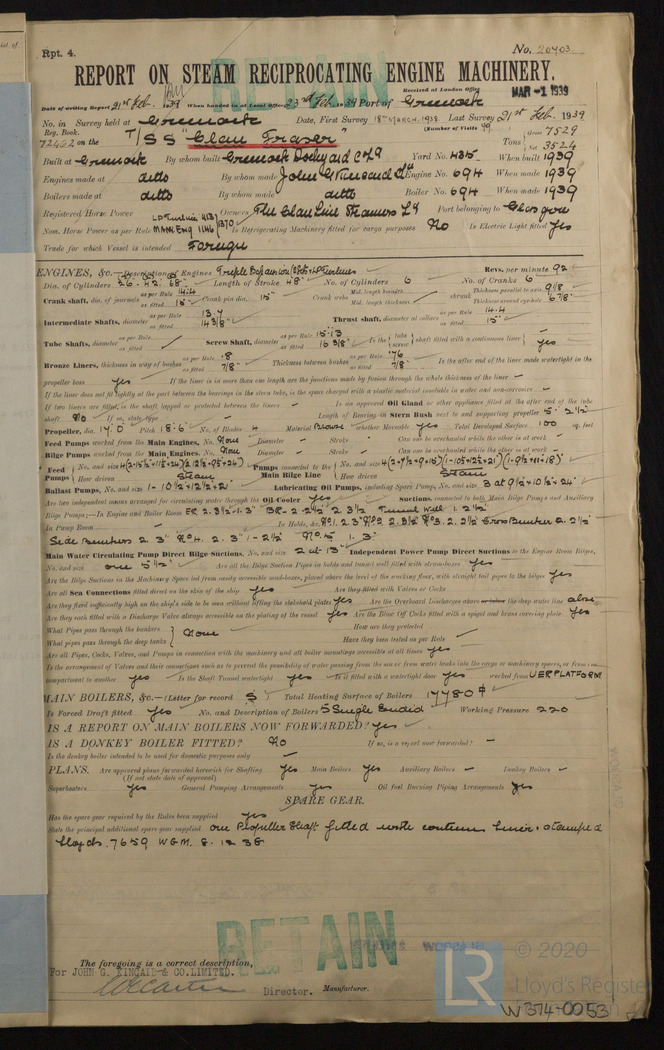 Rpt. 4.
No. 20403
REPORT ON STEAM RECIPROCATING ENGINE MACHINERY.
Received at London Office
MAR -1 1939
Date of writing Report 21st Feb. 1939 When handed in at Local Office 23rd Feb. 1939 Port of Greenock
No. in Survey held at Greenock Date, First Survey 18th March, 1938 Last Survey 21st Feb. 1939
Reg. Book. (Number of Visits 49
72462 on the T/SS "Clan Fraser" Tons Gross 7529
Net 3524
Built at Greenock By whom built Greenock Dockyard Co Ld Yard No. 435 When built 1939
Engines made at ditto By whom made John G Kincaid & Co Ld Engine No. 694 When made 1939
Boilers made at ditto By whom made ditto Boiler No. 694 When made 1939
Registered Horse Power Owners The Clan Line Steamers Ld Port belonging to Glasgow
Nom. Horse Power as per Rule LP Turbine 413 Main Eng 1146 1370 Is Refrigerating Machinery fitted for cargo purposes No Is Electric Light fitted Yes
Trade for which Vessel is intended Foreign
ENGINES, &c.—Description of Engines Triple Expansion Revs. per minute 92
Dia. of Cylinders 26. 42. 68" Length of Stroke 48" No. of Cylinders 6 No. of Cranks 6
Crank shaft, dia. of journals as per Rule 14.4 as fitted 15" Crank pin dia. 15" Crank webs Mid. length breadth Mid. length thickness shrunk Thickness parallel to axis 9 1/8 Thickness around eye-hole 6 7/8"
Intermediate Shafts, diameter as per Rule 13.7 as fitted 14 3/8" Thrust shaft, diameter at collars as per Rule 14.4 as fitted 15"
Tube Shafts, diameter as per Rule as fitted Screw Shaft, diameter as per Rule 15.13 as fitted 16 3/8" Is the tube screw shaft fitted with a continuous liner Yes
Bronze Liners, thickness in way of bushes as per Rule .8 as fitted 7/8" Thickness between bushes as per Rule .76 as fitted 7/8" Is the after end of the liner made watertight in the
propeller boss Yes If the liner is in more than one length are the junctions made by fusion through the whole thickness of the liner –
If the liner does not fit tightly at the part between the bearings in the stern tube, is the space charged with a plastic material insoluble in water and non-corrosive –
If two liners are fitted, is the shaft lapped or protected between the liners – Is an approved Oil Gland or other appliance fitted at the after end of the tube
shaft No If so, state type – Length of Bearing in Stern Bush next to and supporting propeller 5' 2 1/2"
Propeller, dia. 17' 0" Pitch 18' 6" No. of Blades 4 Material Bronze whether Moveable Yes Total Developed Surface 100 sq. feet
Feed Pumps worked from the Main Engines, No. None Diameter – Stroke – Can one be overhauled while the other is at work –
Bilge Pumps worked from the Main Engines, No. None Diameter – Stroke – Can one be overhauled while the other is at work –
Feed Pumps No. and size How driven Steam Pumps connected to the Main Bilge Line No. and size How driven Steam
Ballast Pumps, No. and size 1 - 10 1/2 × 12 1/2 × 21" Lubricating Oil Pumps, including Spare Pump, No. and size 3 at 9 1/2 × 10 1/2 × 24"
Are two independent means arranged for circulating water through the Oil Cooler Yes Suctions, connected to both Main Bilge Pumps and Auxiliary
Bilge Pumps;—In Engine and Boiler Room ER 2. 3 1/2" 1. 3" BR - 2 2 1/2" 2. 3 1/2 Tunnel Well 1. 2 1/2"
In Pump Room – In Holds, &c. No 1. 2. 3" No 2. 2. 3 1/2 No 3. 2. 2 1/2" Cross Bunker 2. 2 1/2"
Side Bunkers 2. 3" No 4. 2. 3" 1 - 2 1/2" No 5. 1. 3"
Main Water Circulating Pump Direct Bilge Suctions, No. and size 2 at 13" Independent Power Pump Direct Suctions to the Engine Room Bilges,
No. and size one 5 1/2" Are all the Bilge Suction Pipes in holds and tunnel well fitted with strum-boxes Yes
Are the Bilge Suctions in the Machinery Space led from easily accessible mud-boxes, placed above the level of the working floor, with straight tail pipes to the bilges Yes
Are all Sea Connections fitted direct on the skin of the ship Yes Are they fitted with Valves or Cocks
Are they fixed sufficiently high on the ship's side to be seen without lifting the stokehold plates Yes Are the Overboard Discharges above or below the deep water line above
Are they each fitted with a Discharge Valve always accessible on the plating of the vessel Yes Are the Blow Off Cocks fitted with a spigot and brass covering plate Yes
What Pipes pass through the bunkers None How are they protected
What pipes pass through the deep tanks Have they been tested as per Rule –
Are all Pipes, Cocks, Valves, and Pumps in connection with the machinery and all boiler mountings accessible at all times Yes
Is the arrangement of Valves and their connections such as to prevent the possibility of water passing from the sea or from water tanks into the cargo or machinery spaces, or from one
compartment to another Yes Is the Shaft Tunnel watertight Yes Is it fitted with a watertight door Yes worked from UER PLATFORM
MAIN BOILERS, &c.—(Letter for record S) Total Heating Surface of Boilers 17780
Is Forced Draft fitted Yes No. and Description of Boilers 5 Single Ended Working Pressure 220
IS A REPORT ON MAIN BOILERS NOW FORWARDED? Yes
IS A DONKEY BOILER FITTED? No If so, is a report now forwarded? –
Is the donkey boiler intended to be used for domestic purposes only –
PLANS. Are approved plans forwarded herewith for Shafting Yes Main Boilers Yes Auxiliary Boilers – Donkey Boilers –
(If not state date of approval)
Superheaters Yes General Pumping Arrangements Yes Oil fuel Burning Piping Arrangements Yes
SPARE GEAR.
Has the spare gear required by the Rules been supplied Yes
State the principal additional spare gear supplied one Propeller Shaft fitted with continuous liner. stamped
Lloyds. 7659 W.G.M. 8. 12 38
RETAIN
The foregoing is a correct description,
For JOHN G. KINCAID & CO. LIMITED.
Director. Manufacturer.
© 2020
LR Lloyd's Register
W374-0053